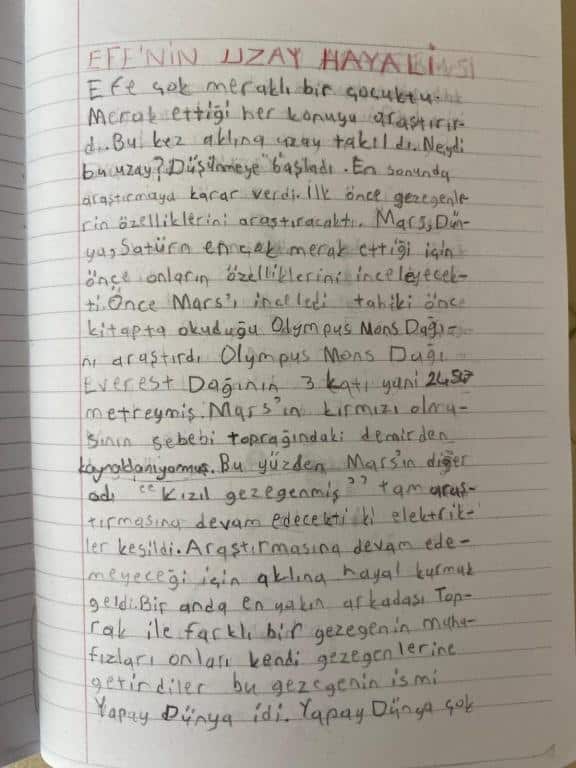 EFE'NİN UZAY HAYALİ
Efe çok meraklı bir çocuktu.
Merak ettiği her konuyu araştırır-
dı. Bu kez aklına uzay takıldı. Neydi
bu uzay? Düşünmeye başladı. En sonunda
araştırmaya karar verdi. İlk önce gezegenle-
rin özelliklerini araştıracaktı. Mars, Dün-
ya, Satürn en çok merak ettiği için
önce onların özelliklerini inceleyecek-
ti. Önce Mars'ı inceledi tabiki önce
kitapta okuduğu Olympus Mons Dağı-
nı araştırdı Olympus Mons Dağı
Everest Dağının 3 katı yani
metreymiş. Mars'ın kırmızı olma-
sının sebebi toprağındaki demirden
kaynaklanıyormuş. Bu yüzden Mars'ın diğer
adı "Kızıl gezegenmiş" tam araş-
tırmasına devam edecekti ki elektrik-
ler kesildi. Araştırmasına devam ede-
meyeceği için aklına hayal kurmak
geldi. Bir anda en yakın arkadaşı Top-
rak ile farklı bir gezegenin muha-
fızları onları kendi gezegenlerine
getirdiler bu gezegenin ismi
Yapay Dünya idi. Yapay Dünya çok